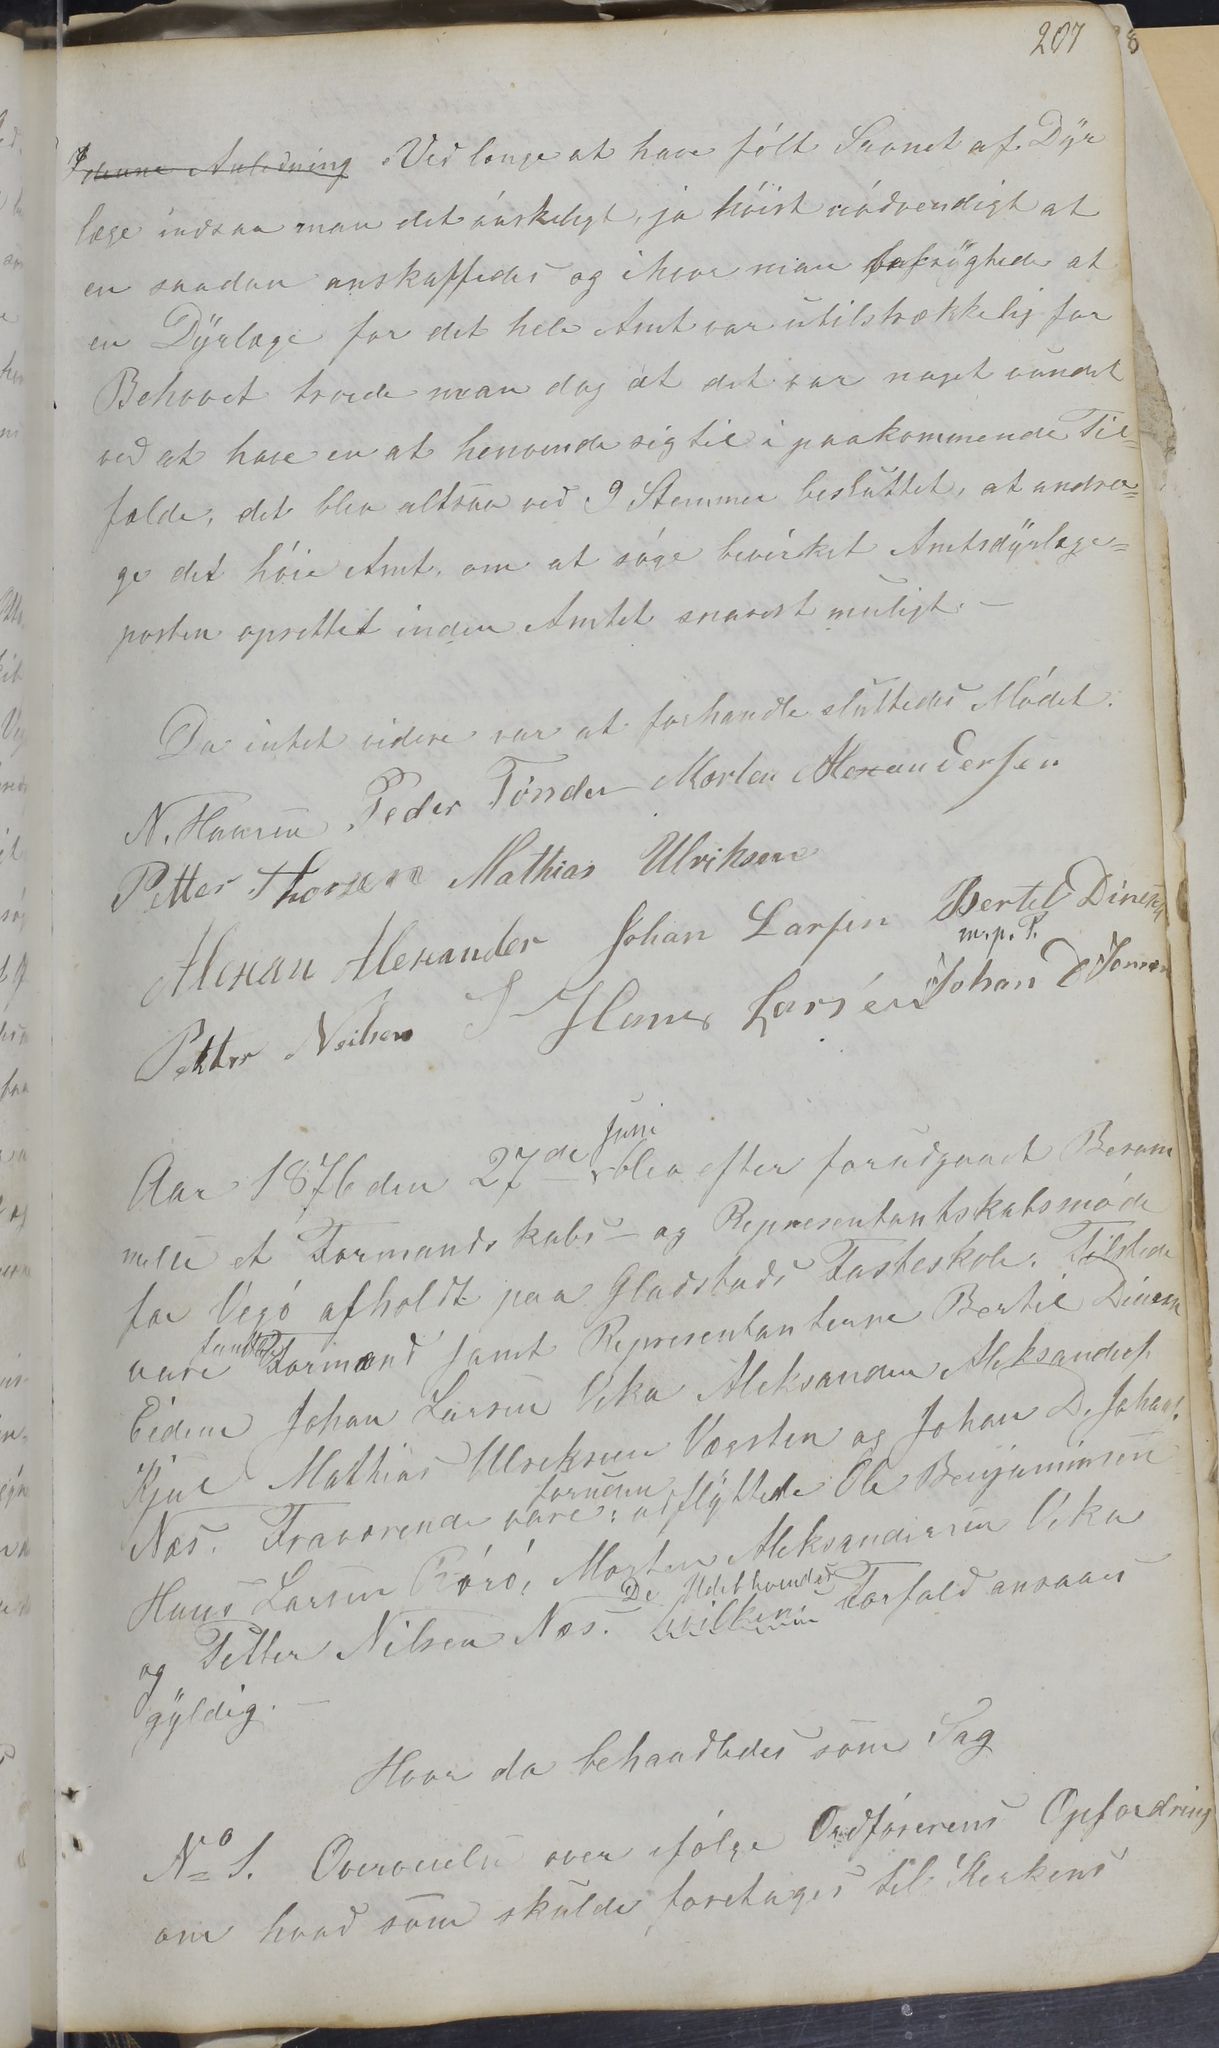 207
I denne Anledning Ved lenge at have følt Savnet af Dyr
læge indsaa man det ønskeligt, ja høist nødvendigt at
en saadan anskaffedes og ihvor man befrygtede at
en Dyrlæge for det hele Amt var utilstrækkelig for
Behovet troede man dog at det var noget vundet
ved at have en at henvende sig til i paakommende Til=
fælde, det blev altsaa ved 9 Stemmer besluttet, at andra=
ge det høie Amt, om at søge bevirket Amtsdyrlæge=
posten oprettet inden Amtet snarest muligt.—
Da intet videre var at forhandle sluttedes Mødet.
N. Hansen Peder Tønder Morten Alexandersen
Petter Thorsen Mathias Ulriksen
Alexan Alexander Johan Larsen Bertel Dines
m. p. P.
Petter Neilsen Hans Larsen Johan D Joh
Juni
Aar 1876 den 27de blev efter forudgaaet Beram
melse et Formandskabs- og Representantskabsmøde
for Vegø afholdt paa Gladstads Fasteskole. Tilstede
vare samtlige Formænd samt Representanterne Bertil Dines
Eidem Johan Larsen Vika Aleksander Aleksanders
Kjul Mathias Ulriksen Vægsten og Johan D. Johans.
Næs. Fraværende vare: foruden udflyttede Ole Benjaminsen
Hans Larsen Rørø, Morten Aleksandersen Vika
og Petter Nilsen Næs. De hvilkens Forfald ansaaes
gyldig.—
Hvor da behandledes som Sag
No 1. Overveielse over ifølge Ordførerens Opfordring
om hvad som skulde foretages til Kirkens